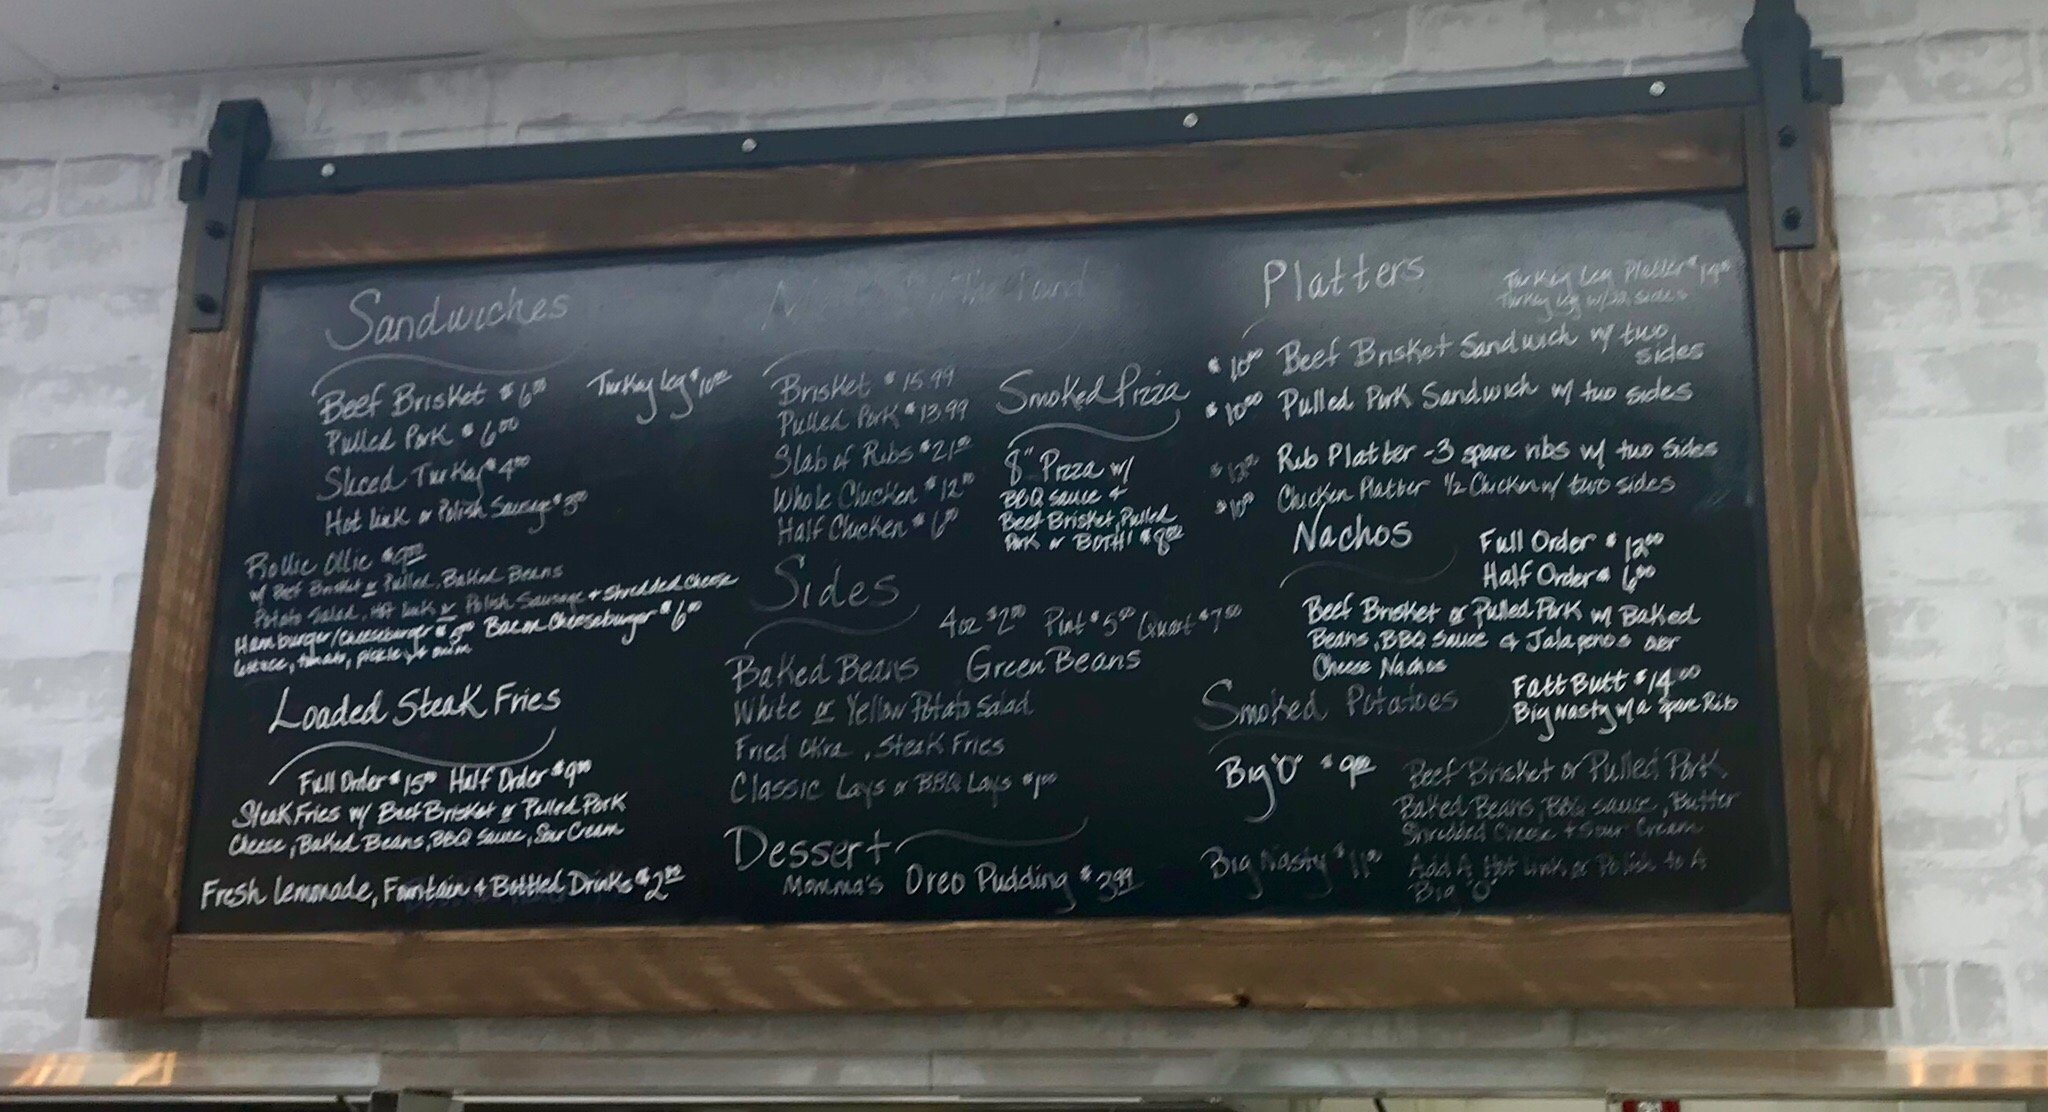 Sandwiches
Beef Brisket $6.00
Turkey Leg $10.00
Pulled Pork $6.00
Sliced Turkey $4.00
Hot Link or Polish Sausage $3.00
Rollie Ollie $9.00
w/ Beef Brisket or Pulled, Baked Beans
Potato Salad, Hot Link or Polish Sausage + Shredded Cheese
Hamburger/Cheeseburger $5.00 Bacon Cheeseburger $6.00
lettuce, tomato, pickle, + onion
Loaded Steak Fries
Full Order $15.00 Half Order $9.00
Steak Fries w/ Beef Brisket or Pulled Pork
Cheese, Baked Beans, BBQ Sauce, Sour Cream
Fresh Lemonade, Fountain + Bottled Drinks $2.00
Pound
Brisket $15.99
Pulled Pork $13.99
Slab of Ribs $21.00
Whole Chicken $12.00
Half Chicken $6.00
Smoked Pizza
8" Pizza w/
BBQ Sauce +
Beef Brisket, Pulled
Pork or BOTH! $8.00
Sides
4oz $2.00 Pint $5.00 Quart $7.00
Baked Beans Green Beans
White or Yellow Potato Salad
Fried Okra, Steak Fries
Classic Lays or BBQ Lays $1.00
Dessert
Momma's Oreo Pudding $3.99
Platters
Turkey Leg Platter
Turkey Leg w/ sides
$10.00 Beef Brisket Sandwich w/ two
sides
$10.00 Pulled Pork Sandwich w/ two sides
Rib Platter - 3 spare ribs w/ two sides
$10.00 Chicken Platter 1/2 Chicken w/ two sides
Nachos
Full Order $12.00
Half Order $6.00
Beef Brisket or Pulled Pork w/ Baked
Beans, BBQ Sauce + Jalapenos over
Cheese Nachos
Smoked Potatoes
Fatt Butt $14.00
Big Nasty w/ a Spare Rib
Big "O" $9.00
Beef Brisket or Pulled Pork
Baked Beans, BBQ Sauce, Butter
Shredded Cheese + Sour Cream
Big Nasty $11.00
Add A Hot Link or Polish to A
Big "O"